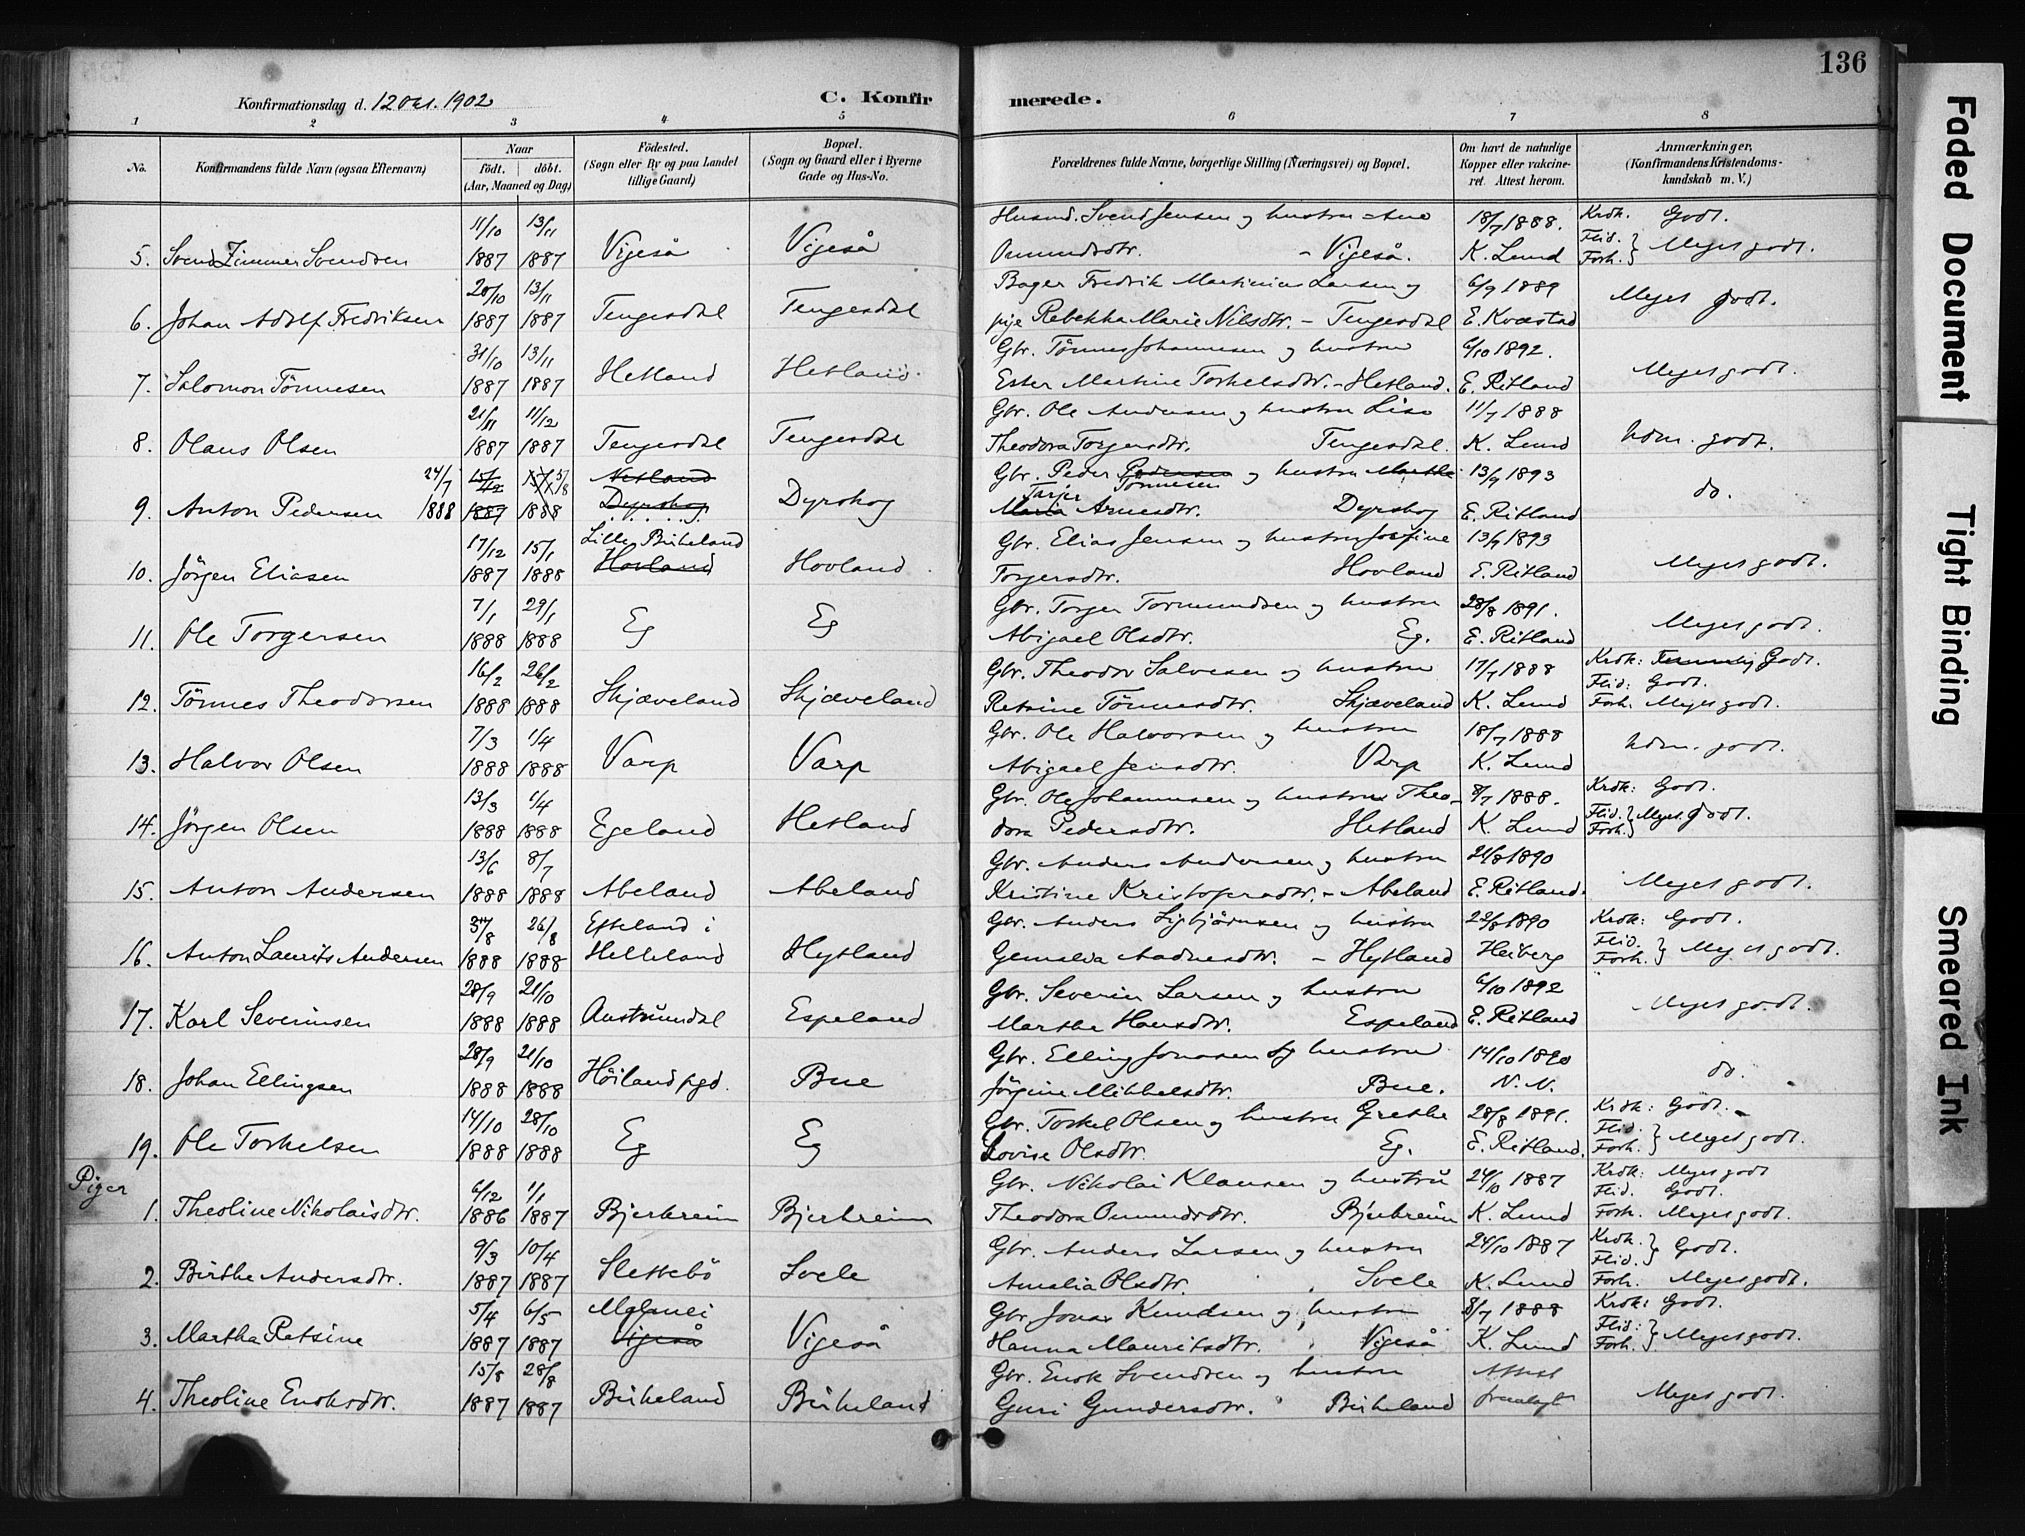 136
Konfirmationsdag d. 12 Okt. 1902
C. Konfirmerede.
1 2 3 4 5 6 7 8
No.
Konfirmandens fulde Navn (ogsaa Efternavn)
Naar
födt. döbt.
(Aar, Maaned og Dag)
Födested.
(Sogn eller By og paa Landet
tillige Gaard)
Bopæl.
(Sogn og Gaard eller i Byerne
Gade og Hus-No.
Forældrenes fulde Navne, borgerlige Stilling (Næringsvei) og Bopæl.
Om havt de naturlige
Kopper eller vakcine-
ret. Attest herom.
Anmærkninger,
(Konfirmandens Kristendoms-
kundskab m. V.)
11/10 13/11 Husmd. Svend Jensen og hustru Ane 18/7 1888. Krdk. Godt.
5. Svend Zimmer Svendsen 1887 1887 Vigeså Vigeså Omundsdtr. - Vigeså. K. Lund Flid. Forh. } Meget godt.
20/10 13/11 Bager Fredrik Martinius Larsen og 6/9 1889
6. Johan Adolf Fredriksen 1887 1887 Tengesdal Tengesdal pige Rebekka Marie Nilsdtr. - Tengesdal E. Kvæstad Meget godt.
31/10 13/11 Gbr. Tönnes Johannesen og hustru 6/10 1892.
7. Salomon Tönnesen 1887 1887 Hetland Hetland. Ester Martine Torkelsdtr. - Hetland. E. Ritland Meget godt.
21/11 11/12 Gbr. Ole Andersen og hustru Lise 11/7 1888
8. Olaus Olsen 1887 1887 Tengesdal Tengesdal Theodora Torgersdtr. Tengesdal. K. Lund Udm. godt.
24/7 15/12 5/8 Netland Gbr. Peder Pedersen og hustru Martha 13/9 1893
Tönnesen
Tarjer
9. Anton Pedersen 1888 1887 1888 Dyrskog Dyrskog Maria Arnesdtr. Dyrskog E. Ritland do.
17/12 15/1 Lille Birkeland Gbr. Elias Jensen og hustru Josefine 13/9 1893
10. Jörgen Eliasen 1887 1888 Hovland Hovland Torgersdtr. Hovland E. Ritland Meget godt.
7/1 29/1 Gbr. Torger Tormundsen og hustru 28/8 1891.
11. Ole Torgersen 1888 1888 Eg Eg Abigael Olsdtr. Eg. E. Ritland Meget godt.
16/2 26/2 Gbr. Theodor Salvesen og hustru 17/7 1888 Krdk: Temmelig Godt.
Flid: Godt.
12. Tönnes Theodorsen 1888 1888 Skjæveland Skjæveland Retsine Tönnesdtr. Skjæveland K. Lund Forh. Meget godt.
7/3 1/4 Gbr. Ole Halvorsen og hustru 18/7 1888
13. Halvor Olsen 1888 1888 Varp Varp Abigael Jensdtr. Varp K. Lund Udm. godt.
13/3 1/4 Gbr. Ole Johannesen og hustru Theo- 8/7 1888. Krdk: Godt.
14. Jörgen Olsen 1888 1888 Egeland Hetland dora Pedersdtr. Hetland K. Lund Flid. Forh. } Meget godt.
13/6 8/7 Gbr. Anders Andersen og hustru 21/8 1890
15. Anton Andersen 1888 1888 Abeland Abeland Kristine Kristofersdtr. - Abeland E. Ritland. Meget godt.
26/8 Efteland i Gbr. Anders Sigbjörnsen og hustru 22/8 1890 Krdk: Godt.
16. Anton Laurits Andersen 1888 1888 Helleland Hytland Aadnesdtr. - Hytland Heiberg Flid. Forh. } Meget godt.
28/9 21/10 Gbr. Severin Larsen og hustru 6/10 1892
17. Karl Severinsen 1888 1888 Austrumdal Espeland Marthe Hansdtr. Espeland E. Ritland Meget godt.
28/9 21/10 Gbr. Elling Jonasen og hustru 14/10 1890
18. Johan Ellingsen 1888 1888 Höiland pgd. Bue Jörgine Mikkelsdtr. Bue. N. N. do.
14/10 28/10 Gbr. Torkel Olsen og hustru Grethe 28/8 1891. Krdk: Godt.
19. Ole Torkelsen 1888 1888 Eg Eg Lovise Olsdtr. Eg. E. Ritland. Flid. Forh. } Meget godt.
Piger
6/12 1/1 Gbr. Nikolai Klausen og hustru 24/10 1887 Krdk: Meget godt
Flid. Godt.
1. Theoline Nikolaisdtr. 1886 1887 Bjerkreim Bjerkreim Theodora Omundsdtr. Bjerkreim K. Lund Forh. Meget godt.
9/3 10/4 Gbr. Anders Larsen og hustru 24/10 1887 Krdk. Flid. } Godt.
2. Birthe Andersdtr. 1887 1887 Slettebö Svele Amalia Olsdtr. Svele K. Lund Forh. Meget godt.
5/4 6/5 Gbr. Jonas Knudsen og hustru 8/7 1888 Krdk: Godt.
3. Martha Retsine 1887 1887 Vigeså Vigeså Hanna Mauritsdtr. Vigeså K. Lund Flid: Forh. } Meget godt.
15/8 28/8 Gbr. Enok Svendsen og hustru Attest
4. Theoline Enoksdtr. 1887 1887 Birkeland Birkeland Guri Gundersdtr. Birkeland fremlagt Meget godt.
Faded Document
Tight Binding
Smeared Ink